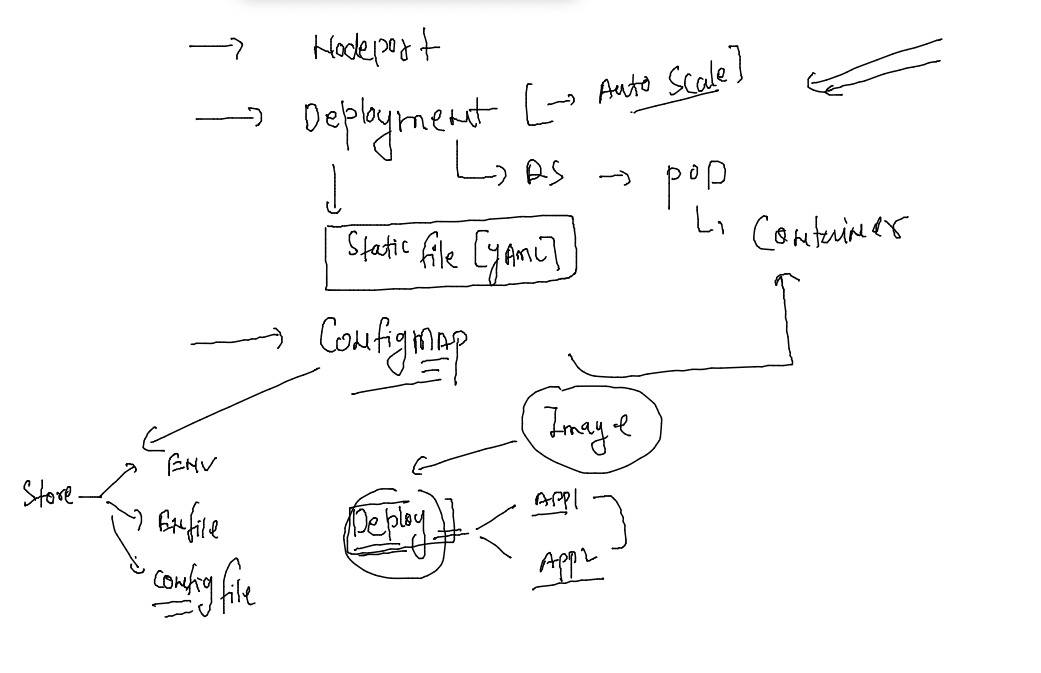 Nodeport
Deployment [→ Auto Scale]
RS → POD
Container
Static file [YAML]
ConfigMAP
Image
Store
ENV
Enfile
Config file
Deploy
APP1
APP2